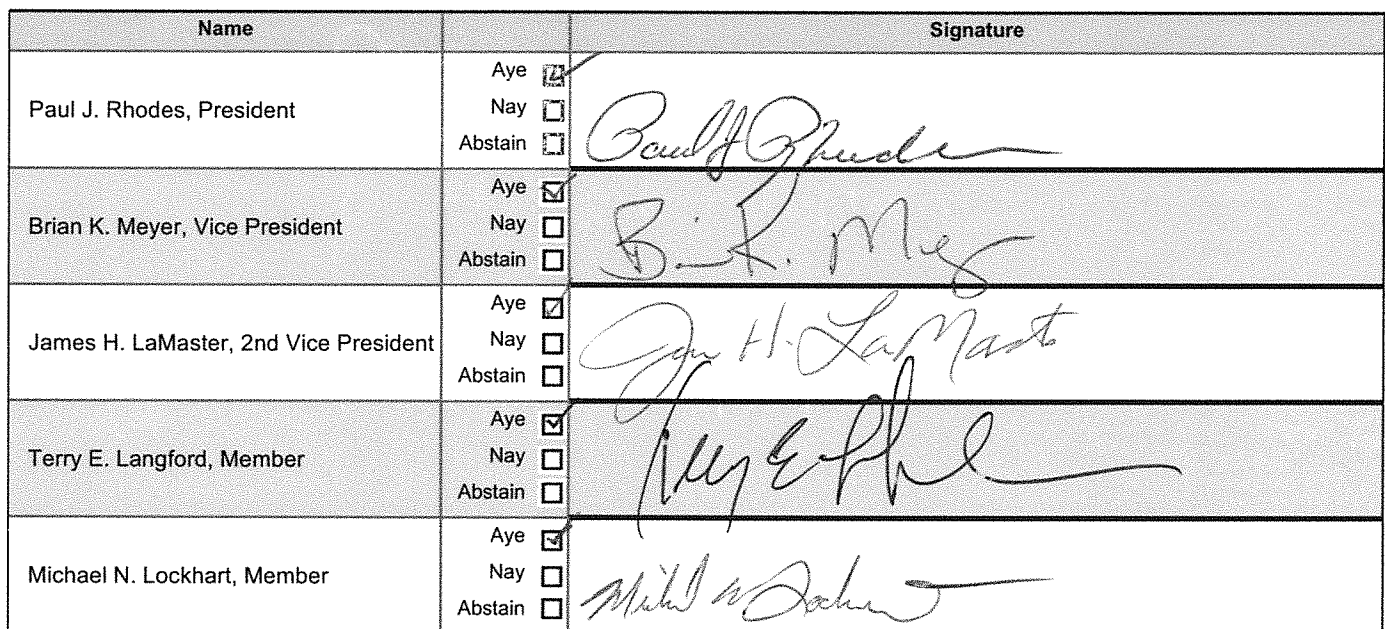 Name Signature
Aye ☑
Paul J. Rhodes, President
Nay ☐
Abstain ☐
Paul J Rhodes
Aye ☑
Brian K. Meyer, Vice President
Nay ☐
Abstain ☐
Aye ☑
James H. LaMaster, 2nd Vice President
Nay ☐
Abstain ☐
H. LaMaster
Aye ☑
Terry E. Langford, Member
Nay ☐
Abstain ☐
Terry E
Aye ☑
Michael N. Lockhart, Member
Nay ☐
Abstain ☐